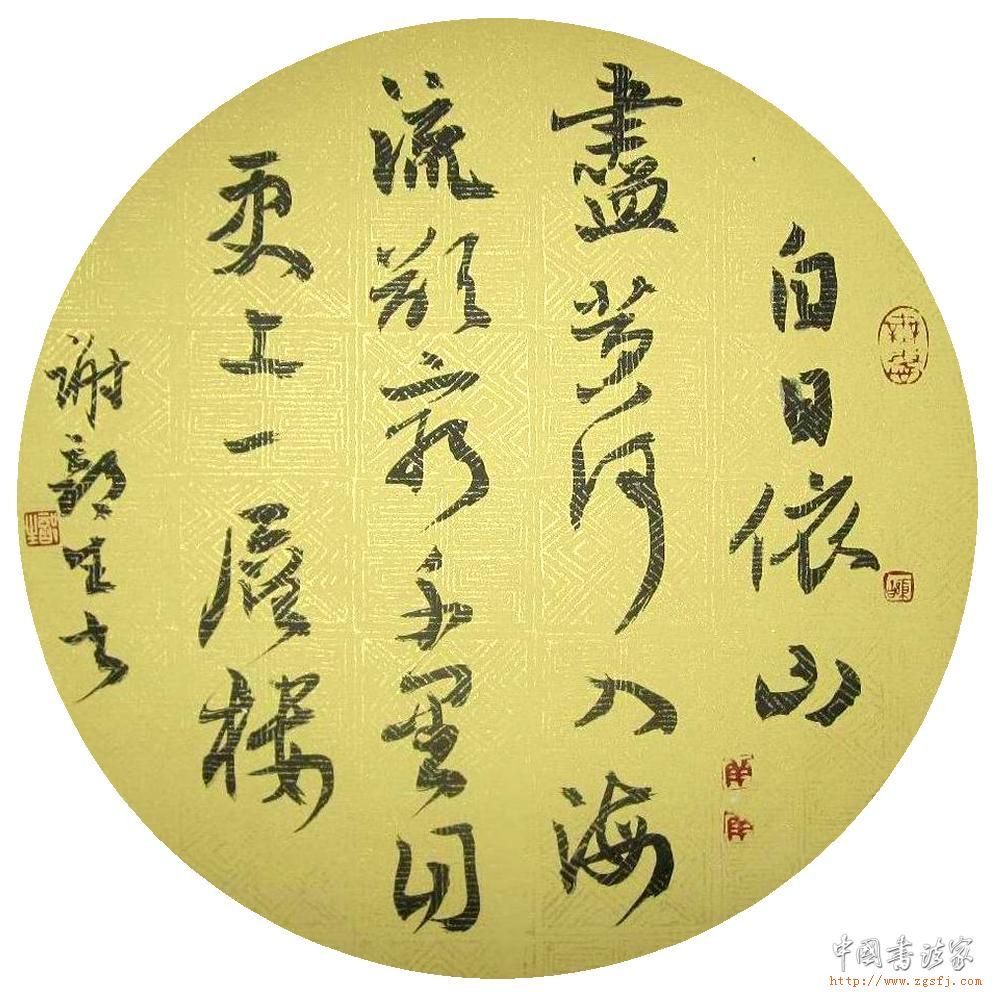 白日依山
盡黃河入海
流欲窮千里目
更上一層樓
謝韶生書
中國書法家
http://www.zgsfj.com